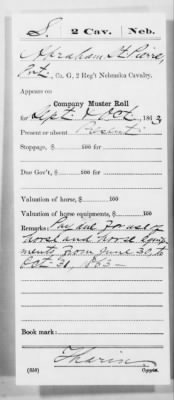 S. 2 Cav. Neb.
Abraham St Pierre
Pvt., Co. G, 2 Reg't Nebraska Cavalry.
Appears on
Company Muster Roll
for Sept & Oct, 1863
Present or absent Present
Stoppage, $ 100 for
Due Gov't, $ 100 for
Valuation of horse, $ 100
Valuation of horse equipments, $ 100
Remarks: Pay due for use of
horse and horse equip-
ments from June 30, to
Oct 31, 1863—
Book mark:
(358) Copyist.